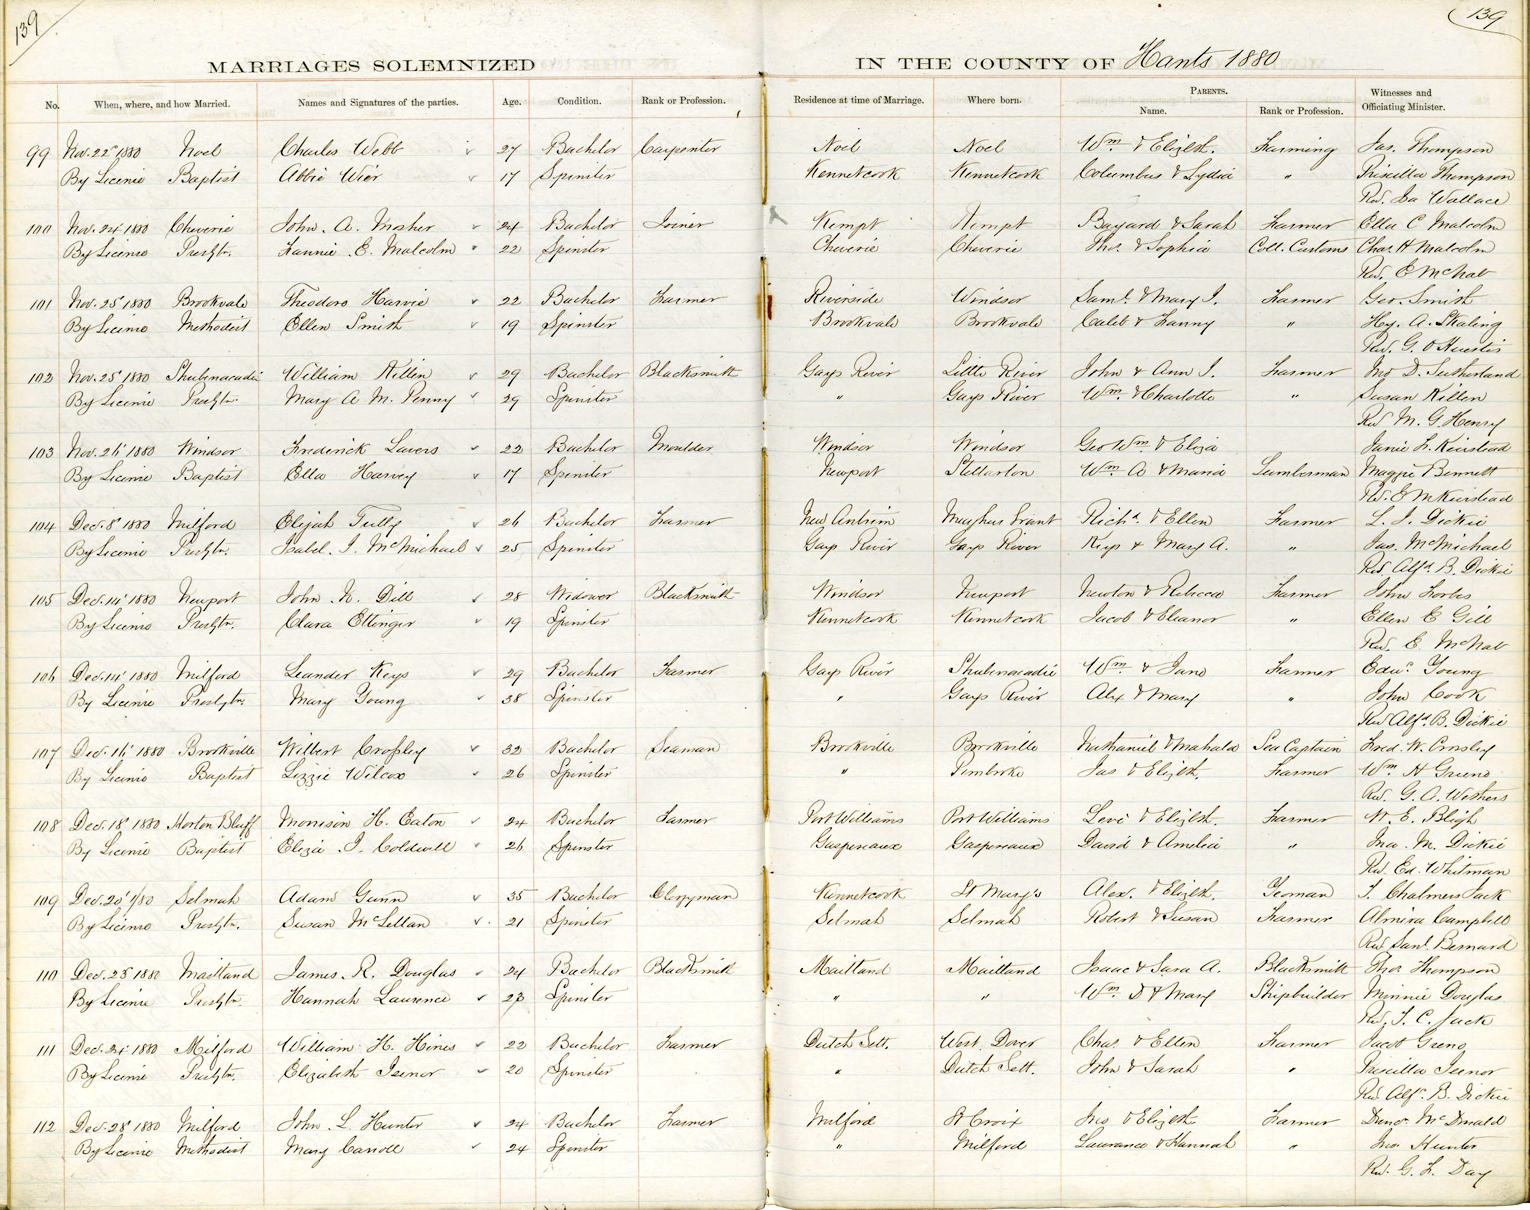 139
139
MARRIAGES SOLEMNIZED IN THE COUNTY OF Hants 1880
No. When, where, and how Married. Names and Signatures of the parties. Age. Condition. Rank or Profession. Residence at time of Marriage. Where born. PARENTS. Witnesses and
Name. Rank or Profession. Officiating Minister.
99 Nov. 22 1880 Noel Charles Webb 27 Bachelor Carpenter Noel Noel Wm & Elizth. Farming Jas. Thompson
By Licence Baptist Abbie Wier 17 Spinster Kennetcook Kennetcook Columbus & Lydia " Priscilla Thompson
Rev. Isa Wallace
100 Nov. 24 1880 Cheverie John. A. Mosher 24 Bachelor Joiner Kempt Kempt Bayard & Sarah Farmer Ella C Malcolm
By Licence Presbtn. Fannie E. Malcolm 22 Spinster Cheverie Cheverie Thos. & Sophia Coll. Customs Chas. H Malcolm
Rev. E McNab
101 Nov. 25 1880 Brookvale Theodore Harvie 22 Bachelor Farmer Riverside Windsor Saml. & Mary J. Farmer Geo. Smith
By Licence Methodist Ellen Smith 19 Spinster Brookvale Brookvale Caleb & Fanny " Hy. A. Skaling
Rev. G. O Huestis
102 Nov. 25 1880 Shubenacadie William Killen 29 Bachelor Blacksmith Gays River Little River John & Ann J. Farmer Jno D. Sutherland
By Licence Presbtn. Mary A M. Penny 29 Spinster " Gays River Wm & Charlotte " Susan Killen
Rev M. G. Henry
103 Nov. 26 1880 Windsor Frederick Lavers 22 Bachelor Moulder Windsor Windsor Geo Wm & Eliza Janie L. Keirstead
By Licence Baptist Ella Harvey 17 Spinster Newport Stellarton Wm A & Maria Lumberman Maggie Bennett
Rev. E M Keirstead
104 Dec. 8 1880 Milford Elijah Tully 26 Bachelor Farmer New Antrim Meaghers Grant Richd. & Ellen Farmer L. J. Dickie
By Licence Presbtn. Isabel. J. McMichael 25 Spinster Gays River Gays River Keys & Mary A. " Jas. McMichael
Rev Alfd. B. Dickie
105 Dec. 14 1880 Newport John N. Dill 28 Widower Blacksmith Windsor Newport Newton & Rebecca Farmer John Forbes
By Licence Presbtn. Clara Ettinger 19 Spinster Kennetcook Kennetcook Jacob & Eleanor " Ellen E Gill
Rev. E. McNab
106 Dec. 14 1880 Milford Leander Keys 29 Bachelor Farmer Gays River Shubenacadie Wm & Jane Farmer Edwd. Young
By Licence Presbytn. Mary Young 38 Spinster " Gays River Alex & Mary " John Cook
Rev Alfd. B. Dickie
107 Dec. 16 1880 Brookville Wilbert Crossley 32 Bachelor Seaman Brookville Brookville Nathaniel & Mahala Sea Captain Fred. W. Crosley
By Licence Baptist Lizzie Wilcox 26 Spinster " Pembroke Jas & Elizth. Farmer Wm H Greeno
Rev. G. A. Withers
108 Dec. 18 1880 Horton Bluff Morrison H. Eaton 24 Bachelor Farmer Port Williams Port Williams Levi & Elizth. Farmer W. E. Bligh
By Licence Baptist Eliza J. Coldwell 26 Spinster Gaspereaux Gaspereaux David & Amelia " Ina. M. Dickie
Rev. Ed. Whitman
109 Dec. 20 1/80 Selmah Adam Gunn 35 Bachelor Clergyman Kennetcook St Mary's Alex. & Elizth. Yeoman T. Chalmers Jack
By Licence Presbtn. Susan McLellan 21 Spinster Selmah Selmah Robert & Susan Farmer Almira Campbell
Rev Saml. Bernard
110 Dec. 23 1880 Maitland James. R. Douglas 24 Bachelor Blacksmith Maitland Maitland Isaac & Sara A. Blacksmith Thos Thompson
By Licence Presbtn. Hannah Laurence 23 Spinster " " Wm D & Mary Shipbuilder Minnie Douglas
Rev. T. C. Jack
111 Dec. 24 1880 Milford William H. Hines 22 Bachelor Farmer Dutch Sett. West Dover Chas. & Ellen Farmer Jacob Greno
By Licence Presbtn. Elizabeth Isenor 20 Spinster " Dutch Sett. John & Sarah " Priscilla Isenor
Rev Alfd. B. Dickie
112 Dec. 28 1880 Milford John L. Hunter 24 Bachelor Farmer Milford St Croix Jno & Elizth Farmer McDonald
By Licence Methodist Mary Carroll 24 Spinster " Milford Lawrence & Hannah " Jno. Hunter
Rev. G. F. Day